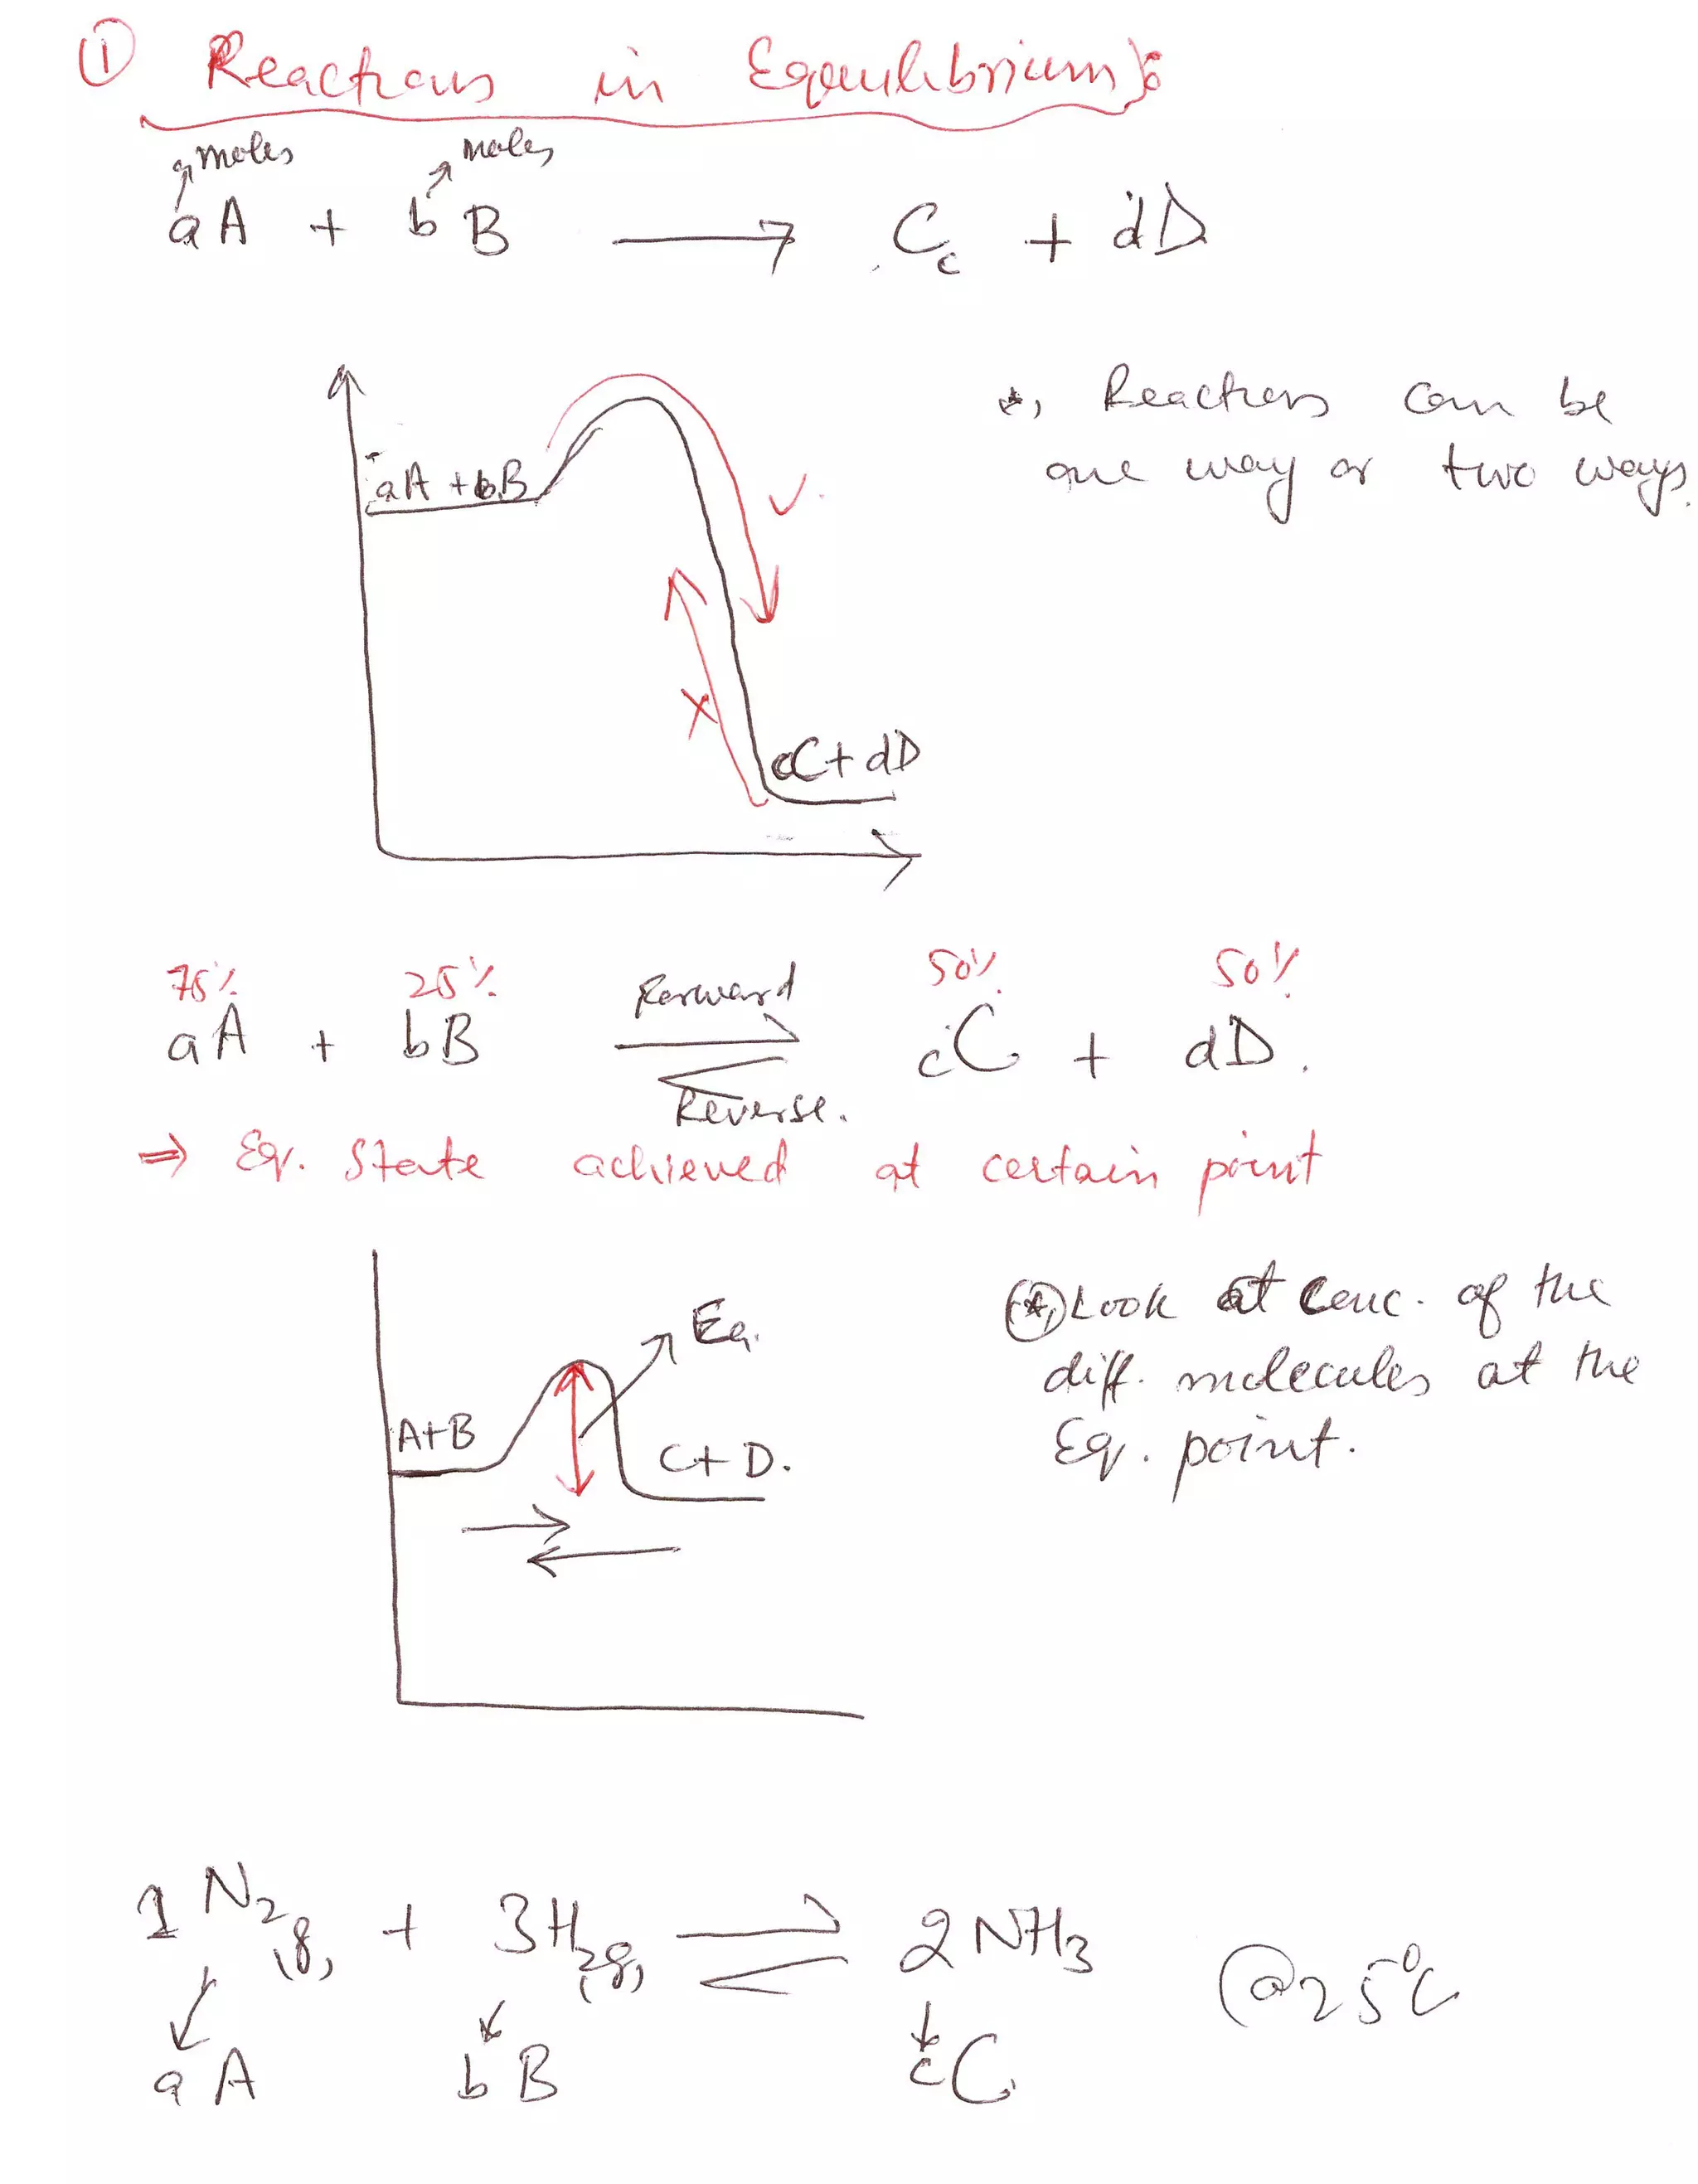 ① Reactions in Equilibrium:
moles moles
aA + bB → Cc + dD
*, Reactions can be
one way or two ways.
aA + bB
✓
X
cC + dD
75% 25% Forward 50% 50%
aA + bB ⇌ cC + dD.
Reverse.
⇒ Eq. State achieved at certain point
Eq.
A+B
C+D.
(*) Look at conc. of the
diff. molecules at the
Eq. point.
1 N2(g) + 3H2(g) ⇌ 2NH3 @25°C
aA bB cC